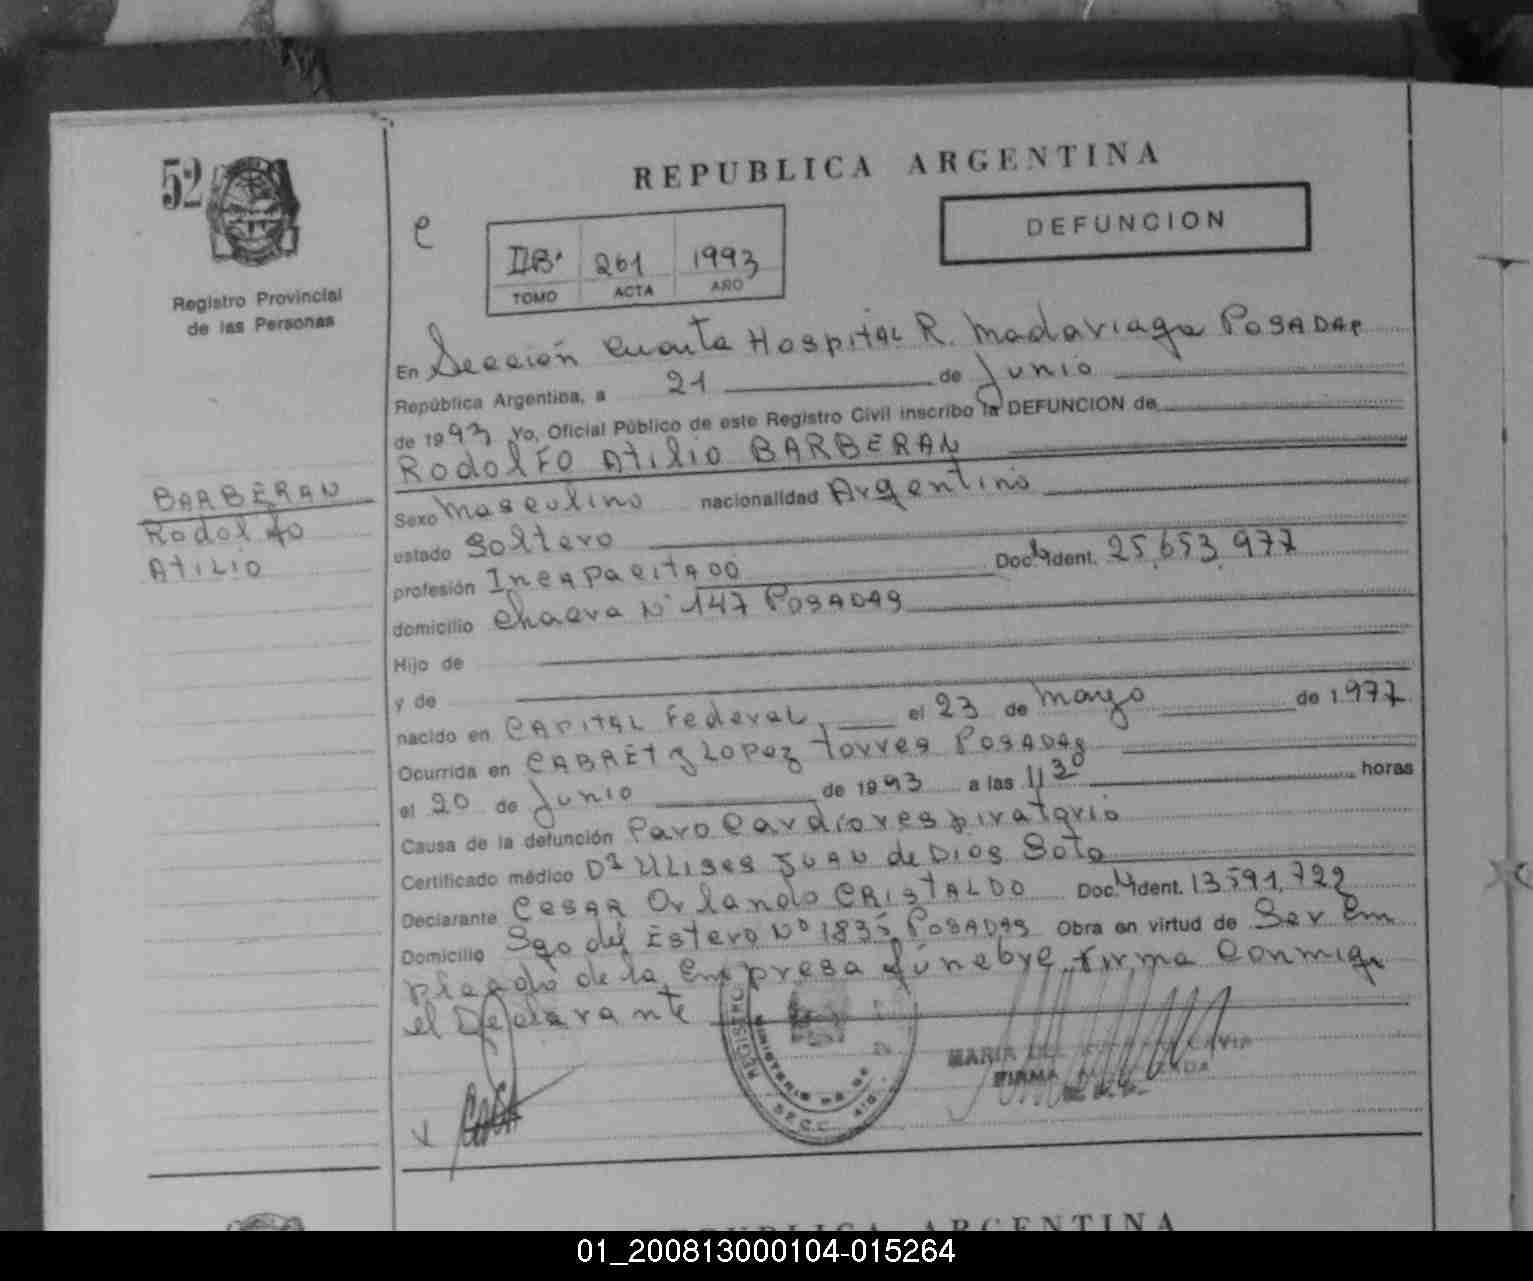 REPUBLICA ARGENTINA
52
DEFUNCION
e
IIB. 261 1993
TOMO ACTA AÑO
Registro Provincial
de las Personas
En Sección Cuarta Hospital R. Madariaga Posadas
República Argentina, a 21 de Junio
de 1993 Yo, Oficial Público de este Registro Civil inscribo la DEFUNCION de
Rodolfo Atilio BARBERAN
BARBERAN
Rodolfo
Atilio
Sexo Masculino nacionalidad Argentino
estado Soltero
profesión Incapacitado Doc. Ident. 25,653,977
domicilio Chacra N° 147 Posadas
Hijo de
y de
nacido en Capital Federal, el 23 de Mayo de 1.977
Ocurrida en CABRET y Lopez Torres Posadas
el 20 de Junio de 1993 a las 11 30 horas
Causa de la defunción Paro Cardiorespiratorio
Certificado médico Dr Ulises Juan de Dios Soto
Declarante Cesar Orlando CRISTALDO Doc. Ident. 13591,722
Domicilio Sgo del Estero N° 1835 Posadas Obra en virtud de Ser Em
pleado de la Empresa fúnebre, firma Conmigo
el Declarante
REGISTRO
MINISTERIO DE
SECC. 4ta
MARIA
FIRMA
REPUBLICA ARGENTINA
01_200813000104-015264